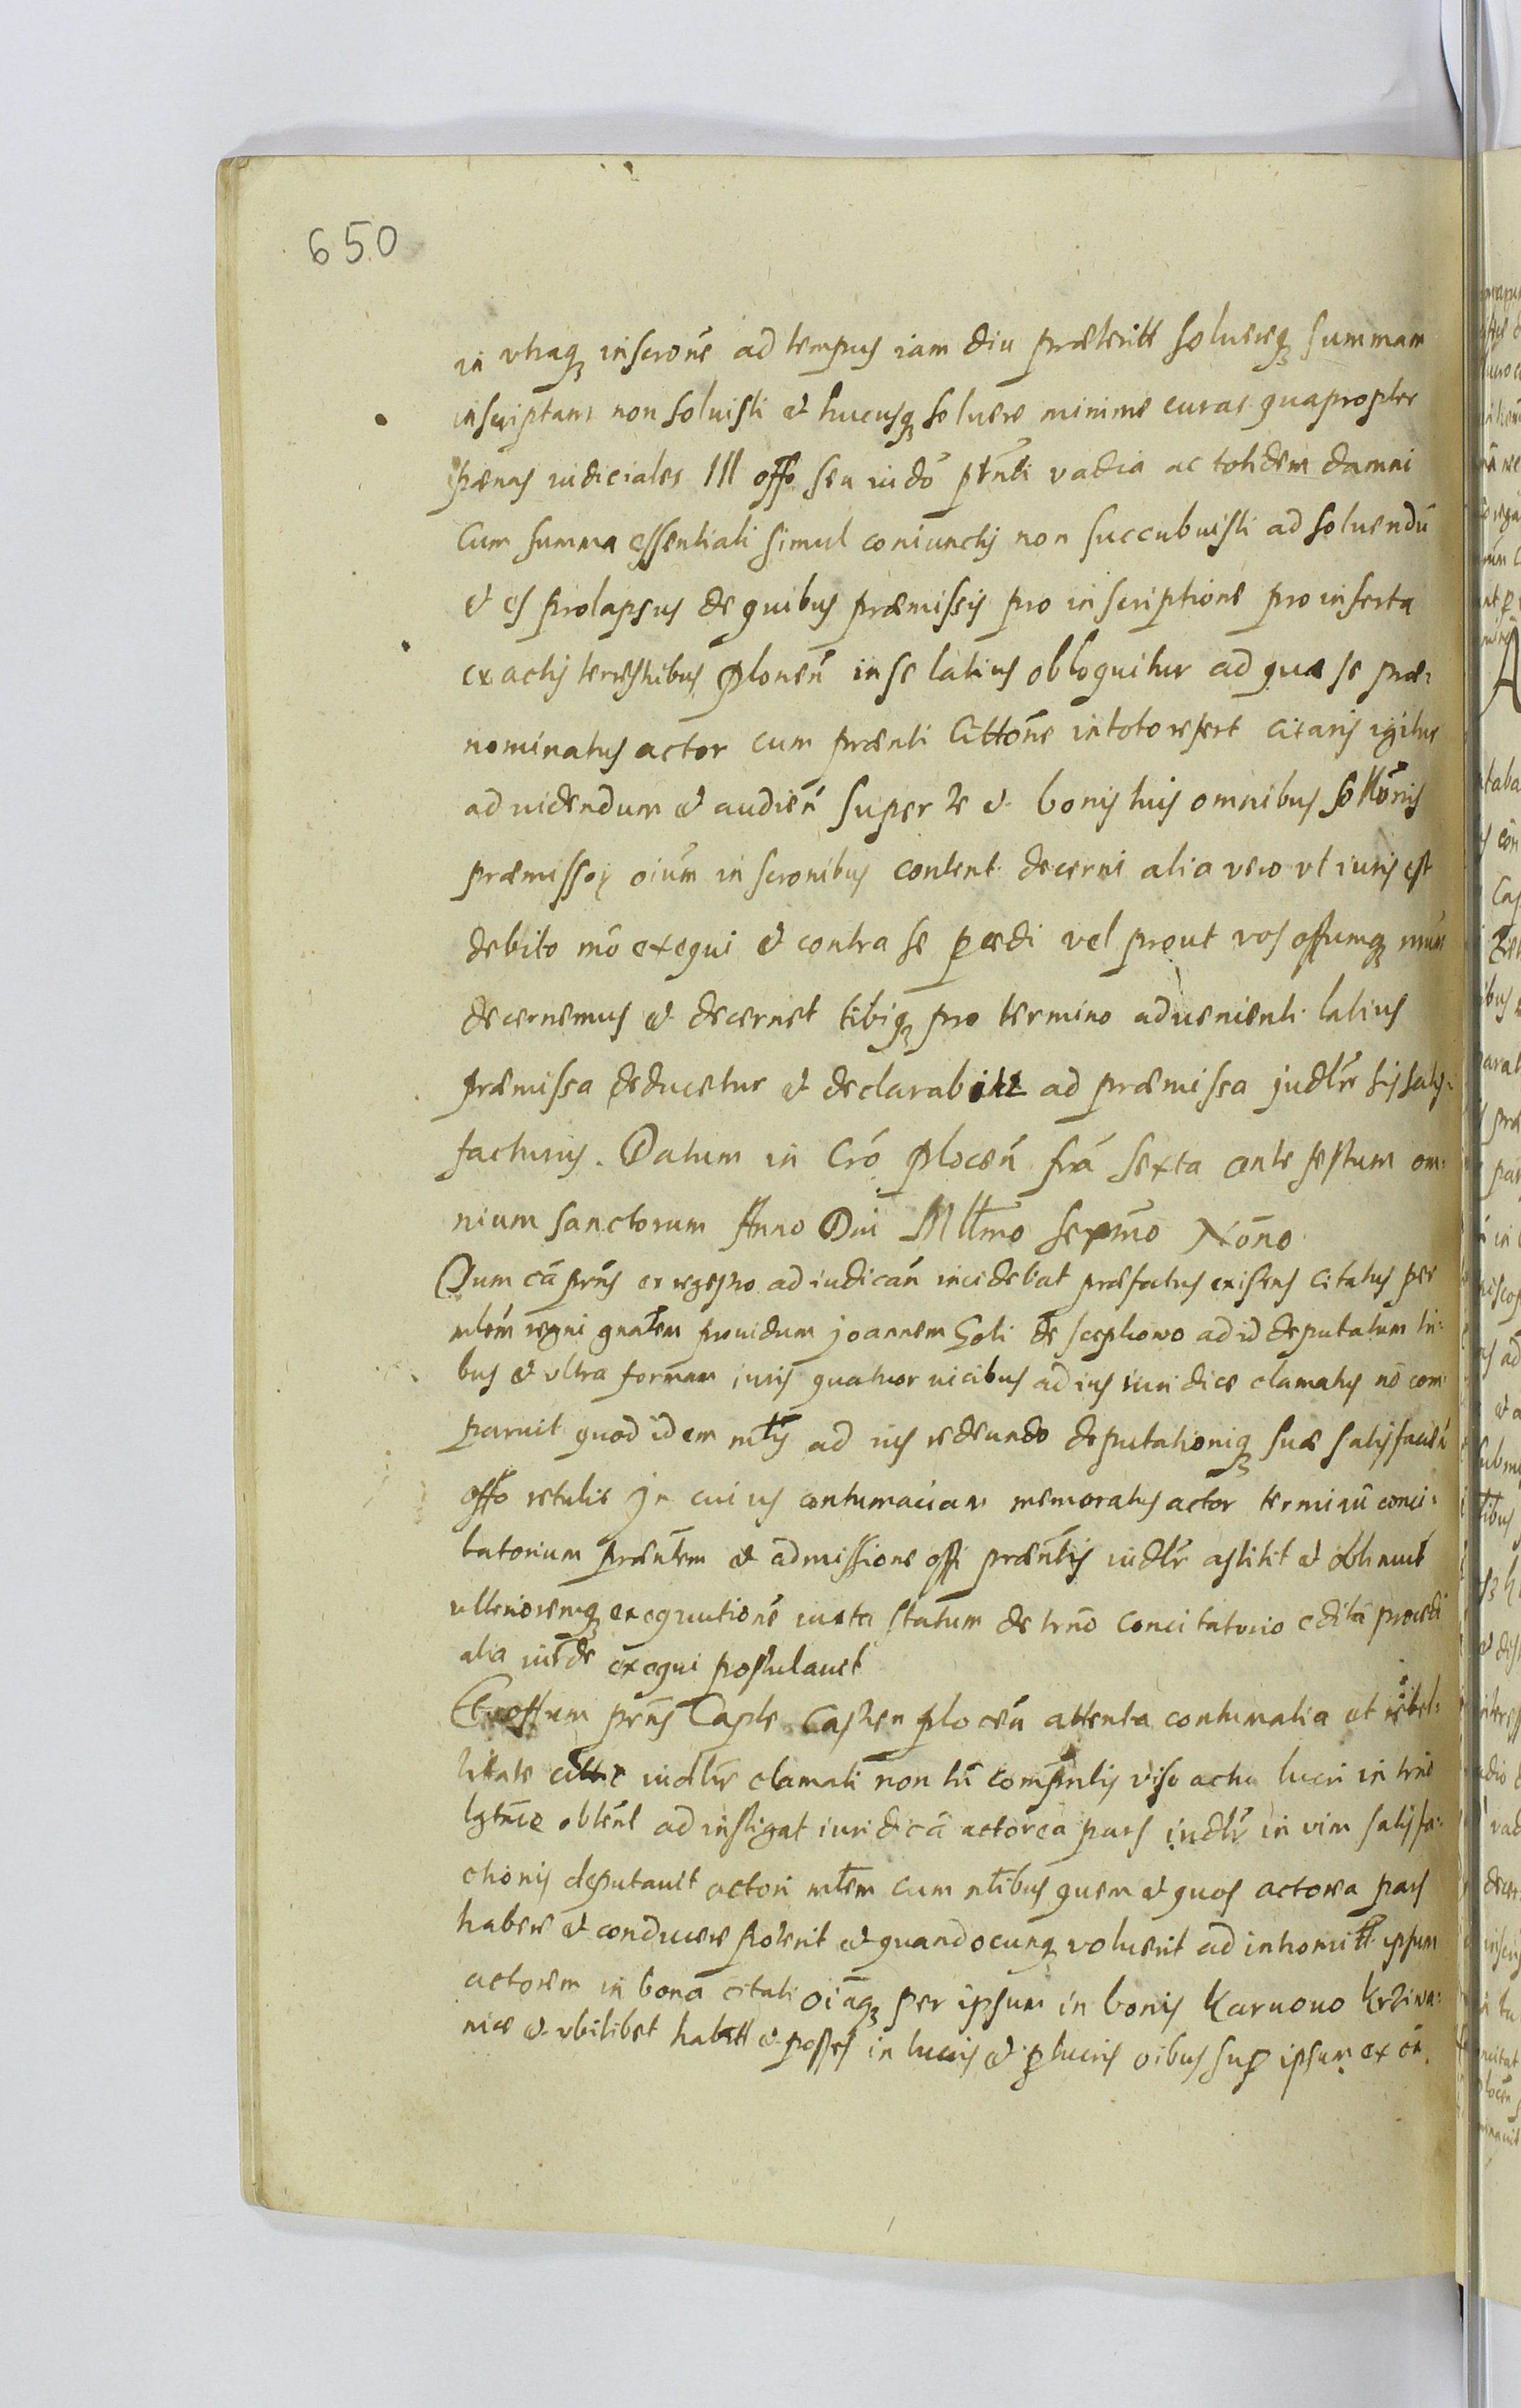 650
in vtraq₃ inscrōne ad tempus iam diu præteritt soluereq₃ summam
inscriptam non soluisti et hucusq₃ soluere minime curas quapropter
pænas iudiciales III offo seu iudō pñti vadia ac totidem damni
Cum summa essentiali simul coniunctis non succubuisti ad soluendū
et es prolapsus de quibus præmissis pro inscriptione pro inserta
ex actis terrestribus Plonen̄ in se latius obloquitur ad quæ se præ-
nominatus actor cum prænti Cittōne in toto refert citaris igitur
ad videndum et audien̄ super te et bonis tuis omnibus
præmissoꝝ oium̄ in scronibus content. decerni alia vero vt iuris est
debito mō exequi et contra te ꝓcedi vel prout vos offumq₃ nrum
decernemus et decernet tibiq₃ pro termino aduenienti latius
præmissa deducetur et declarabitt ad præmissa judlr̄ sis satis-
facturus. Datum in Crō Plocen̄ frā sexta ante festum om-
nium sanctorum Anno Dni Mllmō septmō Nōno
Dum cā prn̄s ex regestro ad iudican̄ incidebat præfatus existens citatus per
mlem̄ regni gnalem prouidum joannem Goli de sceptrowo ad id deputatum tri-
bus et vltra formam iuris quatuor vicibus ad ius iuridice clamatus nō com-
paruit quod idem mlis̄ ad ius redeundo deputationiq₃ suæ satisfacien̄
offo retulit In cuius contumaciam memoratus actor terminū conci-
tatorium præntem̄ et admissione offi præntis̄ iudlr̄ astitit et obtinuit
vlterioremq₃ exequutionē iuxta statum de trnō concitatorio editā procedi
alia iurēde exequi postulauit
Et offum prn̄s Capte Castren plocen̄ attenta contumatia et rebel-
litate cittt iudlr̄ clamati non tn̄ comprntis viso actu lucri in trno
lgtmē obten̄t ad instigat iuridicā actorea pars iudlr̄ in vim satisfa-
ctionis deputauit actori mlem̄ cum nlibus̄ quem et quos actorea pars
habere et conducere poterit et quandocunq₃ voluerit ad intromitt ipsum
actorem in bona citati oiāq₃ per ipsum in bonis Karnowo Krziwa-
nice et vbilibet habitt et posses in lucris et ꝑlucris oibus suꝑ ipsum ex cn̄